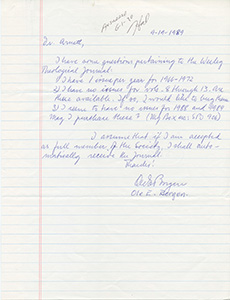 Answered
4-19-1989
Dr. Arnett,
I have some questions pertaining to the Wesley
Theological Journal:
1) I have 1 issue per year for 1966-1972
2) I have no issues for Vols. 8 through 13. Are
these available? If so, I would like to buy them
3) I seem to have no issues for 1988 and 1989
May I purchase these?
I assume that if I am accepted
as full member of the Society, I shall auto-
matically receive the Journal.
Thanks!
Ole E. Borgen